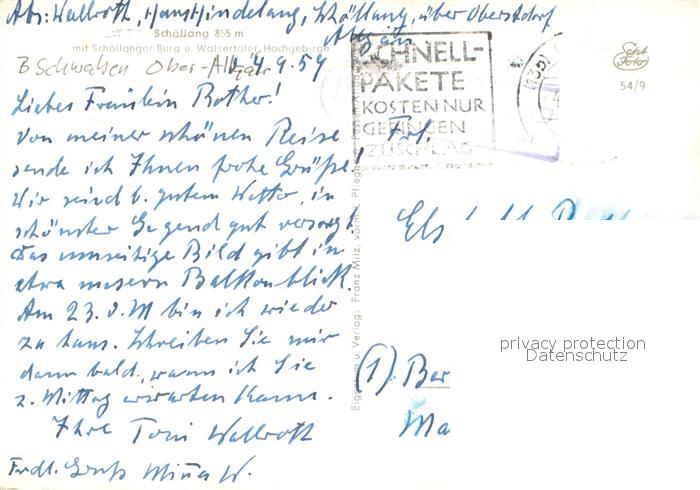 Abs: Wallroth, Haus Hindelang, Schöllang, über Oberstdorf
Allgäu
Schöllang 855 m
mit Schöllanger Burg u. Walsertaler Hochgebirge
B Schwaben Ober-Allgäu
4.9.59
Liebes Fräulein Rother!
Von meiner schönen Reise
sende ich Ihnen frohe Grüße.
Wir sind b. gutem Wetter, in
schönster Gegend gut versorgt.
Das umseitige Bild gibt in
etwa unseren Balkonblick.
Am 23. d. M bin ich wieder
zu Haus. Schreiben Sie mir
dann bald, wann ich Sie
z. Mittag erwarten kann.
Ihre Toni Wallroth
Frdl. Gruß Mina W.
SCHNELL-
PAKETE
KOSTEN NUR
GERINGEN
ZUSCHLAG
Echt
Foto
54/9
Eigentum u. Verlag: Franz Milz, vorm. H. Pflegh
Frl.
Els
(1) Ber
Ma
privacy protection
Datenschutz